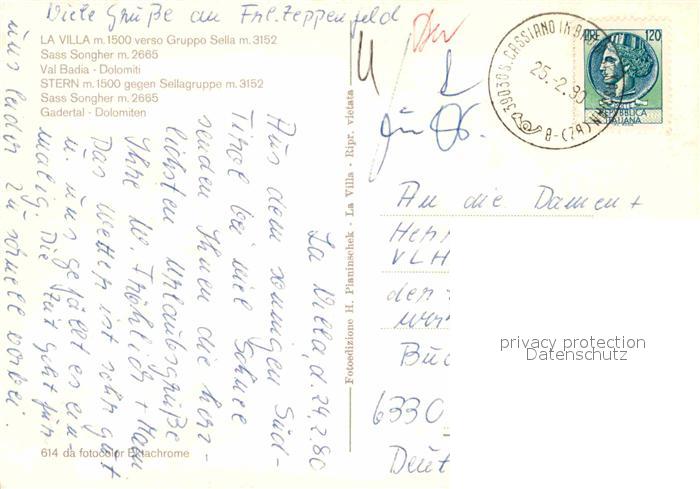 Viele Grüße an Frl. Zeppenfeld
LA VILLA m.1500 verso Gruppo Sella m.3152
Sass Songher m.2665
Val Badia - Dolomiti
STERN m.1500 gegen Sellagruppe m.3152
Sass Songher m.2665
Gadertal - Dolomiten
La Villa, d. 24.2.80
Aus dem sonnigen Süd-
Tirol bei viel Schnee
senden Ihnen die herz-
lichsten Urlaubsgrüße
Ihre W. Fröhlich +
Das Wetter ist sehr gut
u. uns gefällt es ein-
malig. Die Zeit geht für
uns leider zu schnell vorbei.
614 da fotocolor Ektachrome
Fotoedizione H. Planinschek - La Villa - Ripr. vietata
39030 S. CASSIANO IN BADIA
25.-2.80
(BZ)-8
LIRE 120
REPUBBLICA
ITALIANA
An die Damen +
Herr
VLH
der
Buc
6330
Deut
privacy protection
Datenschutz